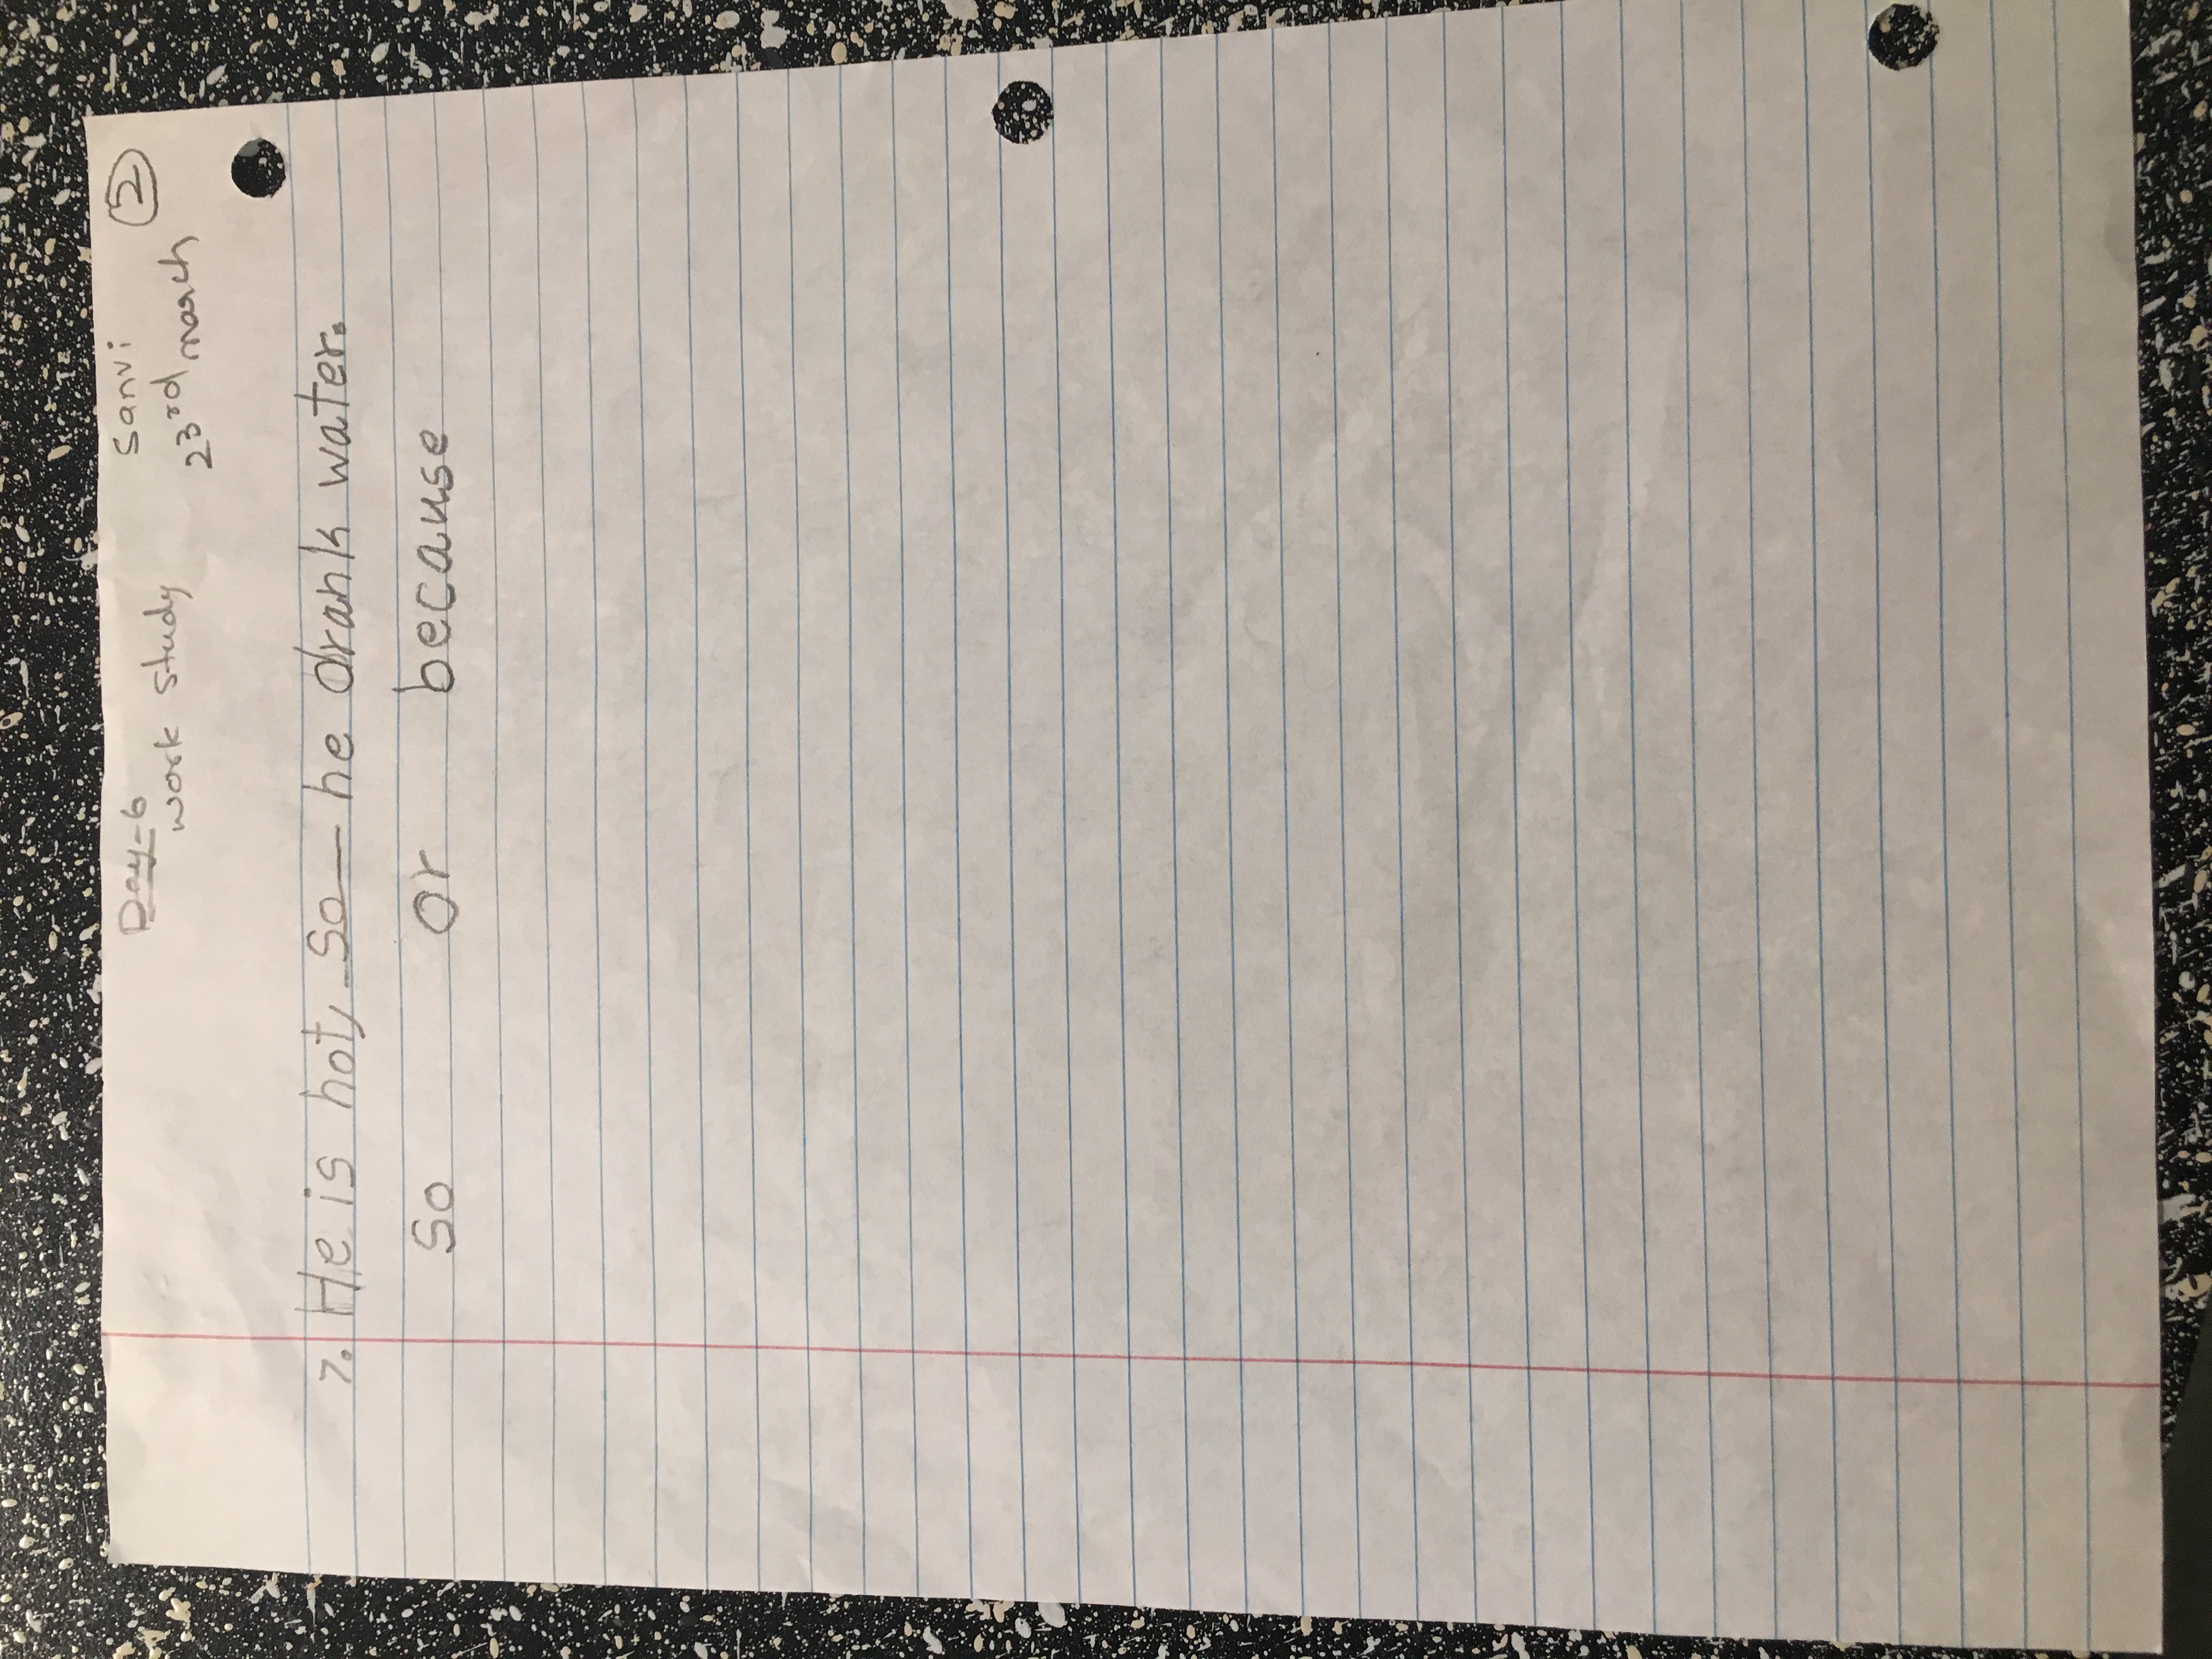 Day-6
work study
Sanvi
23rd march
2
7. He is hot, so he drank water.
so or because